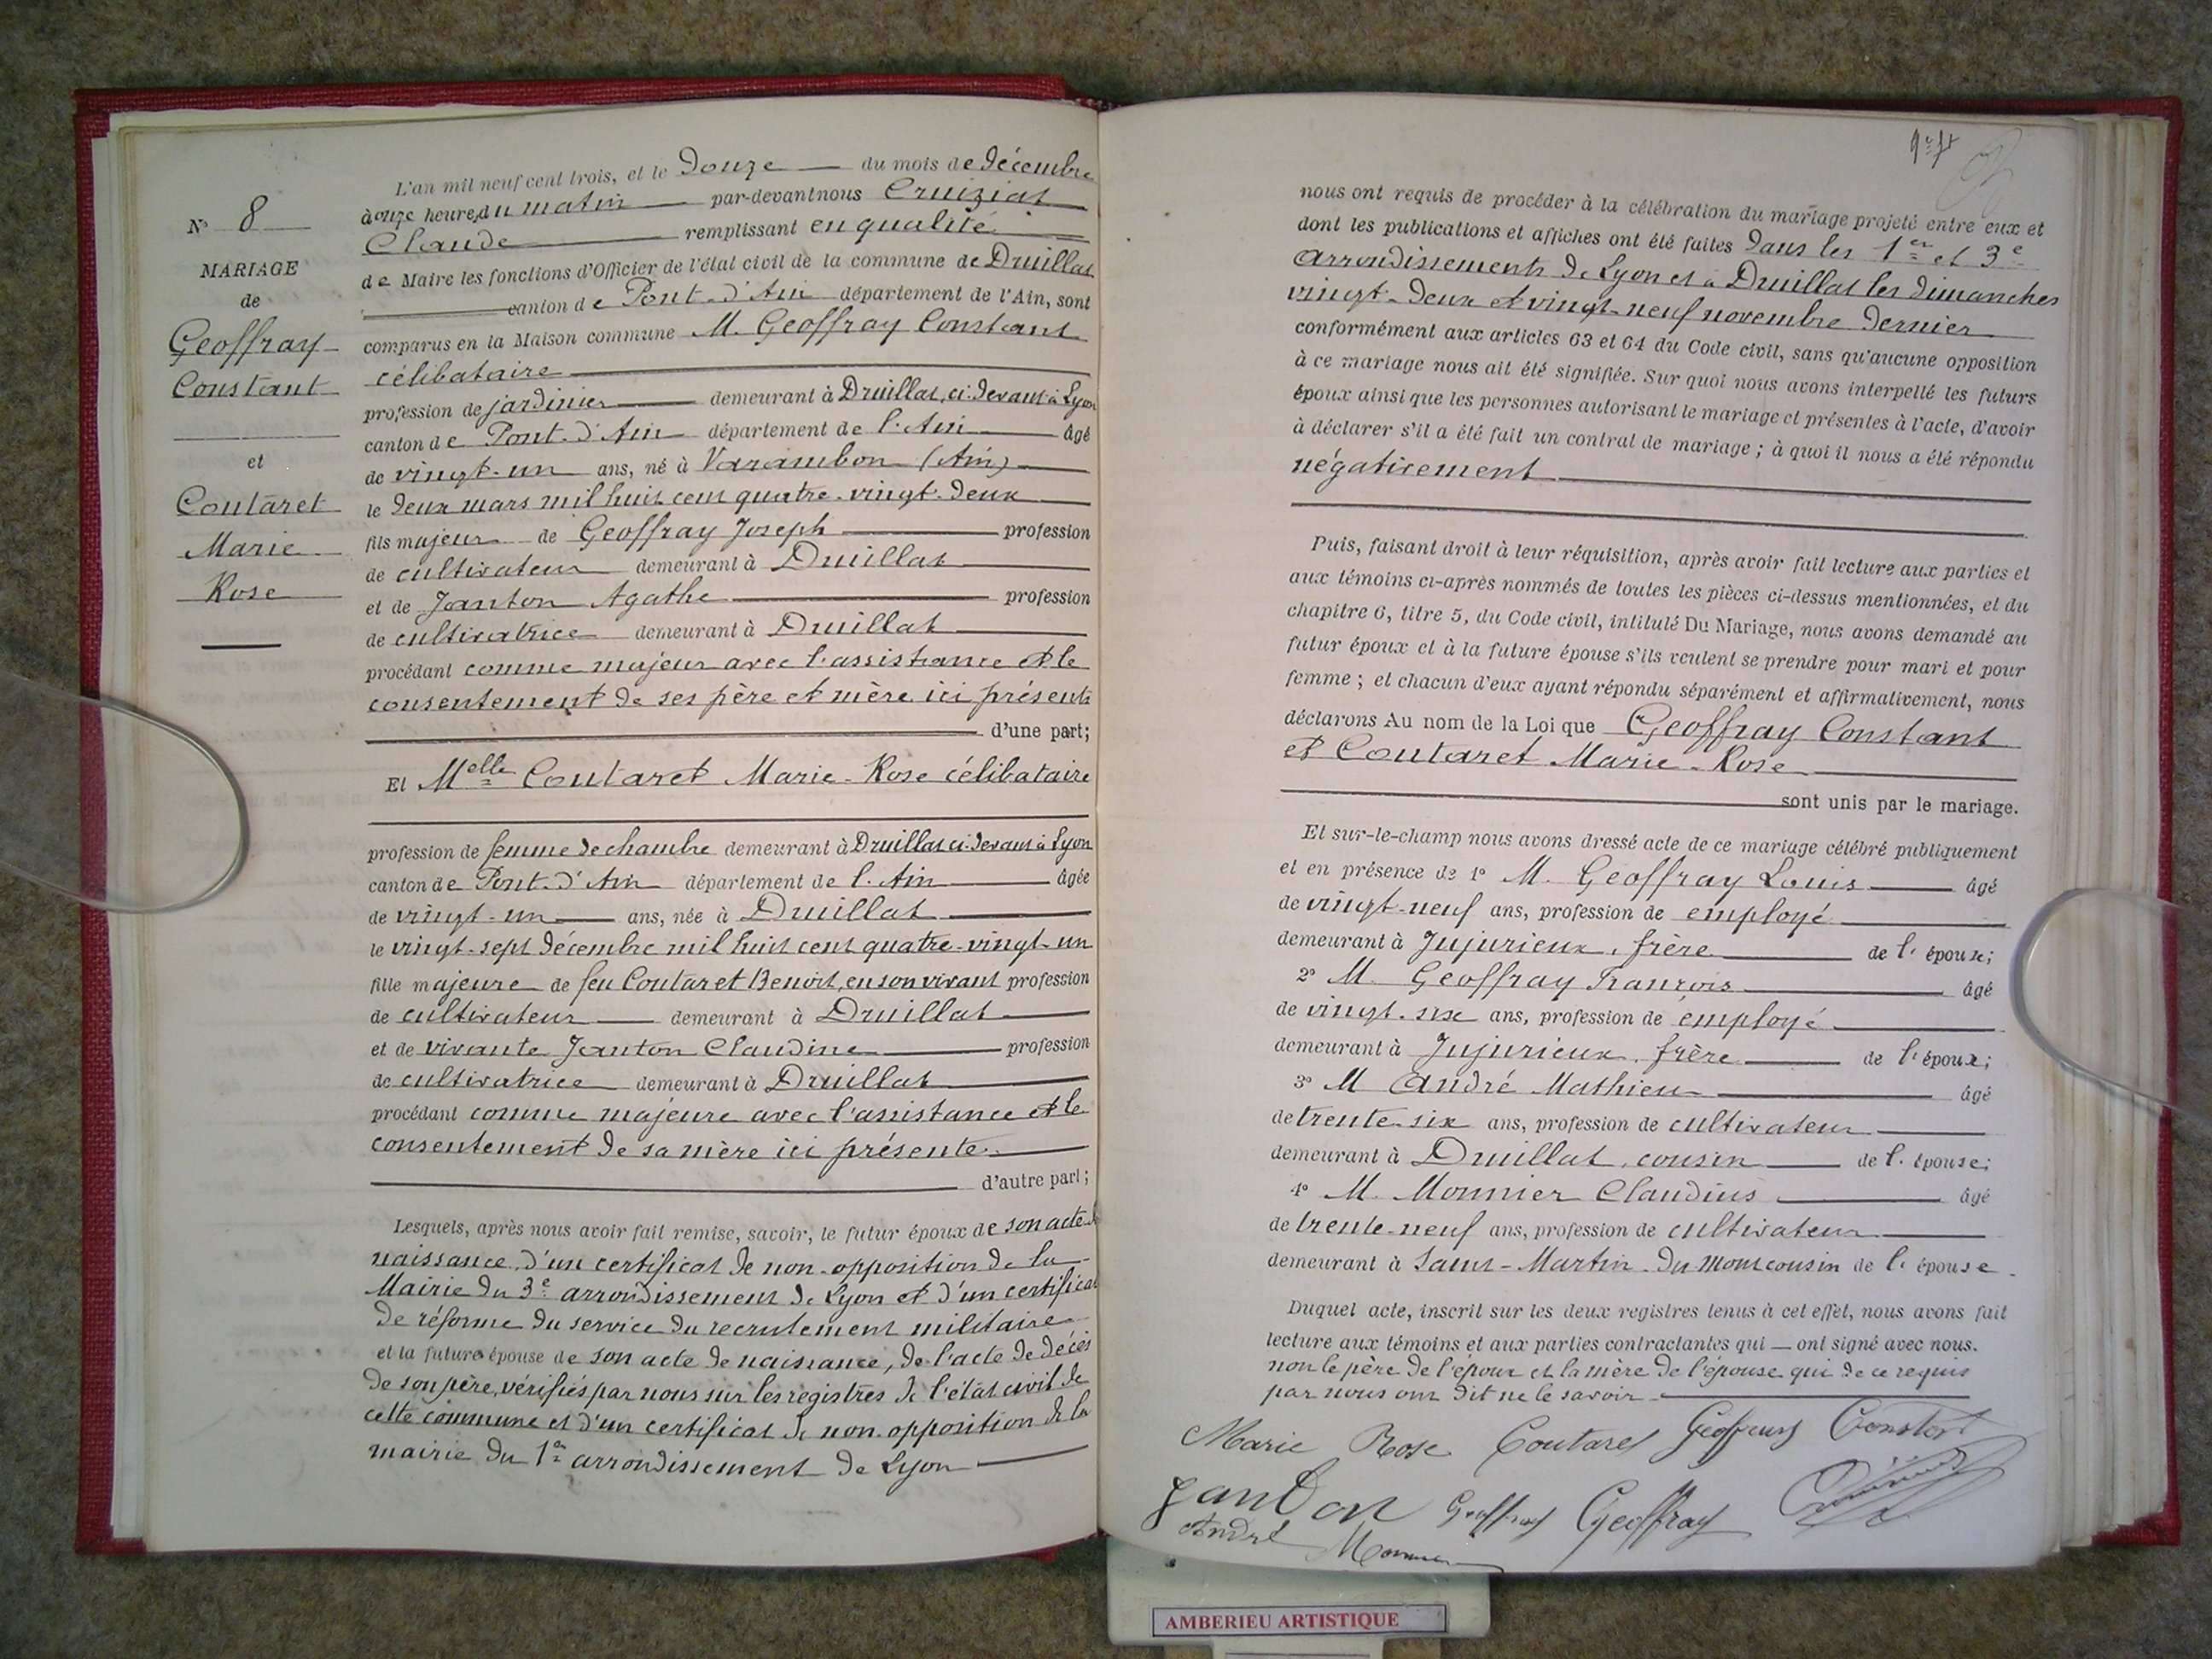 N° 8
MARIAGE
de
Geoffray
Constant
et
Coutaret
Marie
Rose
L'an mil neuf cent trois, et le Douze du mois de Décembre
à onze heures du matin par-devant nous Cruiziat
Claude remplissant en qualité
de Maire les fonctions d'Officier de l'état civil de la commune de Druillat
canton de Pont-d'Ain département de l'Ain, sont
comparus en la Maison commune M. Geoffray Constant
célibataire
profession de jardinier demeurant à Druillat, ci-devant à Lyon
canton de Pont-d'Ain département de l'Ain âgé
de vingt-un ans, né à Varambon (Ain)
le deux mars mil huit cent quatre-vingt-deux
fils majeur de Geoffray Joseph profession
de cultivateur demeurant à Druillat
et de Janton Agathe profession
de cultivatrice demeurant à Druillat
procédant comme majeur avec l'assistance et le
consentement de ses père et mère ici présents
d'une part;
Et Melle Coutaret Marie-Rose célibataire
profession de femme de chambre demeurant à Druillat ci-devant à Lyon
canton de Pont-d'Ain département de l'Ain âgée
de vingt-un ans, née à Druillat
le vingt-sept Décembre mil huit cent quatre-vingt-un
fille majeure de feu Coutaret Benoit, en son vivant profession
de cultivateur demeurant à Druillat
et de vivante Janton Claudine profession
de cultivatrice demeurant à Druillat
procédant comme majeure avec l'assistance et le
consentement de sa mère ici présente
d'autre part;
Lesquels, après nous avoir fait remise, savoir, le futur époux de son acte de
naissance, d'un certificat de non-opposition de la
Mairie du 3e arrondissement de Lyon et d'un certificat
de réforme du service du recrutement militaire
et la future épouse de son acte de naissance, de l'acte de décès
de son père, vérifiés par nous sur les registres de l'état civil de
cette commune et d'un certificat de non-opposition de la
mairie du 1er arrondissement de Lyon
nous ont requis de procéder à la célébration du mariage projeté entre eux et
dont les publications et affiches ont été faites dans les 1er et 3e
arrondissements de Lyon et à Druillat les dimanches
vingt-deux et vingt-neuf novembre dernier
conformément aux articles 63 et 64 du Code civil, sans qu'aucune opposition
à ce mariage nous ait été signifiée. Sur quoi nous avons interpellé les futurs
époux ainsi que les personnes autorisant le mariage et présentes à l'acte, d'avoir
à déclarer s'il a été fait un contrat de mariage; à quoi il nous a été répondu
négativement
Puis, faisant droit à leur réquisition, après avoir fait lecture aux parties et
aux témoins ci-après nommés de toutes les pièces ci-dessus mentionnées, et du
chapitre 6, titre 5, du Code civil, intitulé Du Mariage, nous avons demandé au
futur époux et à la future épouse s'ils veulent se prendre pour mari et pour
femme; et chacun d'eux ayant répondu séparément et affirmativement, nous
déclarons Au nom de la Loi que Geoffray Constant
et Coutaret Marie-Rose
sont unis par le mariage.
Et sur-le-champ nous avons dressé acte de ce mariage célébré publiquement
et en présence de 1° M. Geoffray Louis âgé
de vingt-neuf ans, profession de employé
demeurant à Jujurieux, frère de l'époux;
2° M. Geoffray François âgé
de vingt-six ans, profession de employé
demeurant à Jujurieux, frère de l'époux;
3° M André Mathieu âgé
de trente-six ans, profession de cultivateur
demeurant à Druillat, cousin de l'épouse;
4° M. Monnier Claudius âgé
de trente-neuf ans, profession de cultivateur
demeurant à Saint-Martin-du-Mont cousin de l'épouse.
Duquel acte, inscrit sur les deux registres tenus à cet effet, nous avons fait
lecture aux témoins et aux parties contractantes qui ont signé avec nous.
non le père de l'époux et la mère de l'épouse qui de ce requis
par nous ont dit ne le savoir
Marie Rose Coutaret Geoffray Constant
Janton Geoffray Geoffray Cruiziat
André Monnier
AMBERIEU ARTISTIQUE